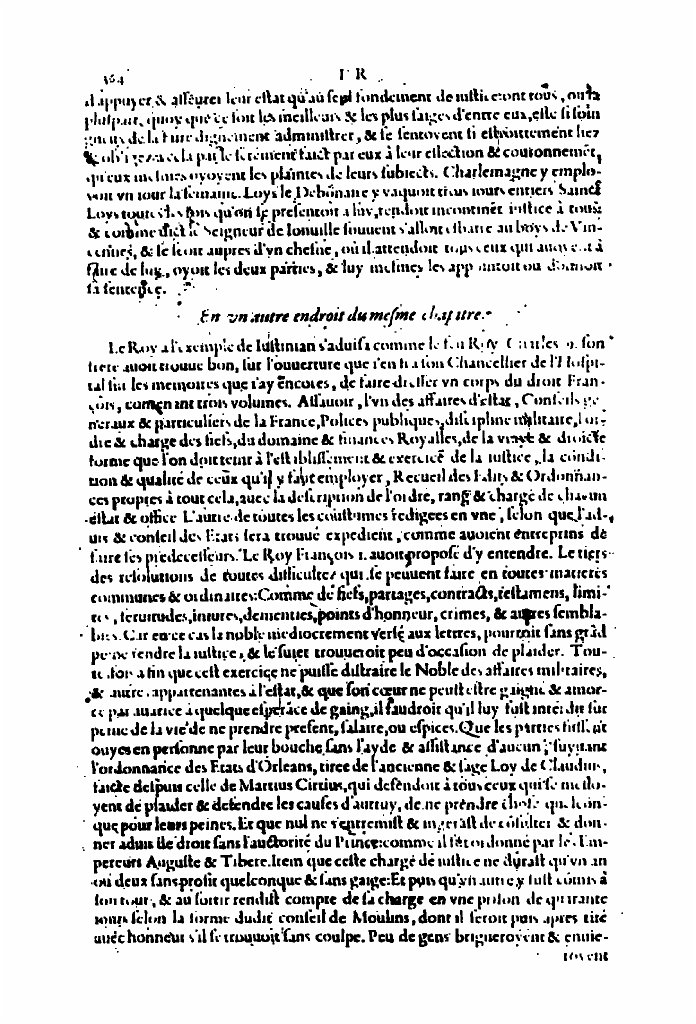 364 I R
d'appuyer & asseurer leur estat qu'au seul fondement de iustice: ont tous, ou la
pluspart, quoy que ce soit les meilleurs & les plus sages d'entre eux, esté si soin
gneux de la faire dignement administrer, & se sentoyent si estroittement liez
& obligez a cela par le serment faict par eux à leur eslection & couronnemēt,
qu'eux mesmes oyoyent les plaintes de leurs subiects. Charlemagne y emplo-
yoit vn iour la semaine. Loys le Debonaire y vaquoit trois iours entiers Sainct
Loys toutes les fois qu'on se presentoit a luy, rendoit incontinēt iustice à tous:
& comme dict le Seigneur de Ionuille souuent s'alloit esbatre au boys de Vin-
cennes, & se seoit aupres d'vn chesne, où il attendoit tous ceux qui auoyent à
faire de luy, oyoit les deux parties, & luy mesmes les appointoit ou donnoit
sa sentence.
En vn autre endroit du mesme chapitre.
Le Roy a l'exemple de Iustinian s'aduisa comme le feu Roy Charles 9. son
frere auoit trouué bon, sur l'ouuerture que s'en fit a son Chancellier de l'Hospi-
tal sur les memoires que i'ay encores, de faire dresser vn corps du droit Fran-
çois, contenant trois volumes. Assauoir, l'vn des affaires d'estat, Conseils ge
neraux & particuliers de la France, Polices publiques, discipline militaire, l'or-
dre & charge des fiefs, du domaine & finances Royalles, de la vraye & droicte
forme que l'on doit tenir à l'establissement & exercice de la iustice, la condi-
tion & qualité de ceux qu'il y faut employer, Recueil des Edits & Ordonnan-
ces propres à tout cela, auec la description de l'ordre, rang & charge de chacun
estat & office L'autre de toutes les coustumes redigees en vne, selon que l'ad-
uis & conseil des Estats sera trouué expedient, comme auoient entreprins de
faire ses predecesseurs. Le Roy François 1. auoit proposé d'y entendre. Le tiers
des resolutions de toutes difficultez qui se peuuent faire en toutes matieres
communes & ordinaires: Comme de fiefs, partages, contracts, testamens, limi-
tes, seruitudes, iniures, dementies, points d'honneur, crimes, & autres sembla-
bles. Car en ce cas la noble mediocrement versé aux lettres, pourroit sans grād
peine rendre la iustice, & le suiet trouueroit peu d'occasion de plaider. Tou-
tesfois afin que cest exercice ne puisse distraire le Noble des affaires militaires,
& autres appartenantes à l'estat, & que son cœur ne peust estre gaigné & amor-
cé par auarice à quelque esperāce de gaing, il faudroit qu'il luy fust interdit sur
peine de la vie de ne prendre present, salaire, ou espices. Que les parties fussēt
ouyes en personne par leur bouche, sans l'ayde & assistance d'aucun, suyuant
l'ordonnance des Estats d'Orleans, tiree de l'ancienne & sage Loy de Claudius,
faicte despuis celle de Martius Cirtius, qui defendoit à tous ceux qui se mesло-
yent de plaider & defendre les causes d'autruy, de ne prendre chose quelcon-
que pour leurs peines. Et que nul ne s'entremist & ingerast de cōsulter & don-
ner aduis de droit sans l'auctorité du Prince: comme il fut ordonné par les Em-
pereurs Auguste & Tibere. Item que ceste charge de iustice ne durast qu'vn an
ou deux sans profit quelconque & sans gaige: Et puis qu'vn autre y fust cōmis à
son tour, & au sortir rendist compte de sa charge en vne prison de quarante
iours selon la forme dudit conseil de Moulins, dont il seroit puis apres tiré
auec honneur s'il se trouuoit sans coulpe. Peu de gens brigueroyent & enuie-
royent